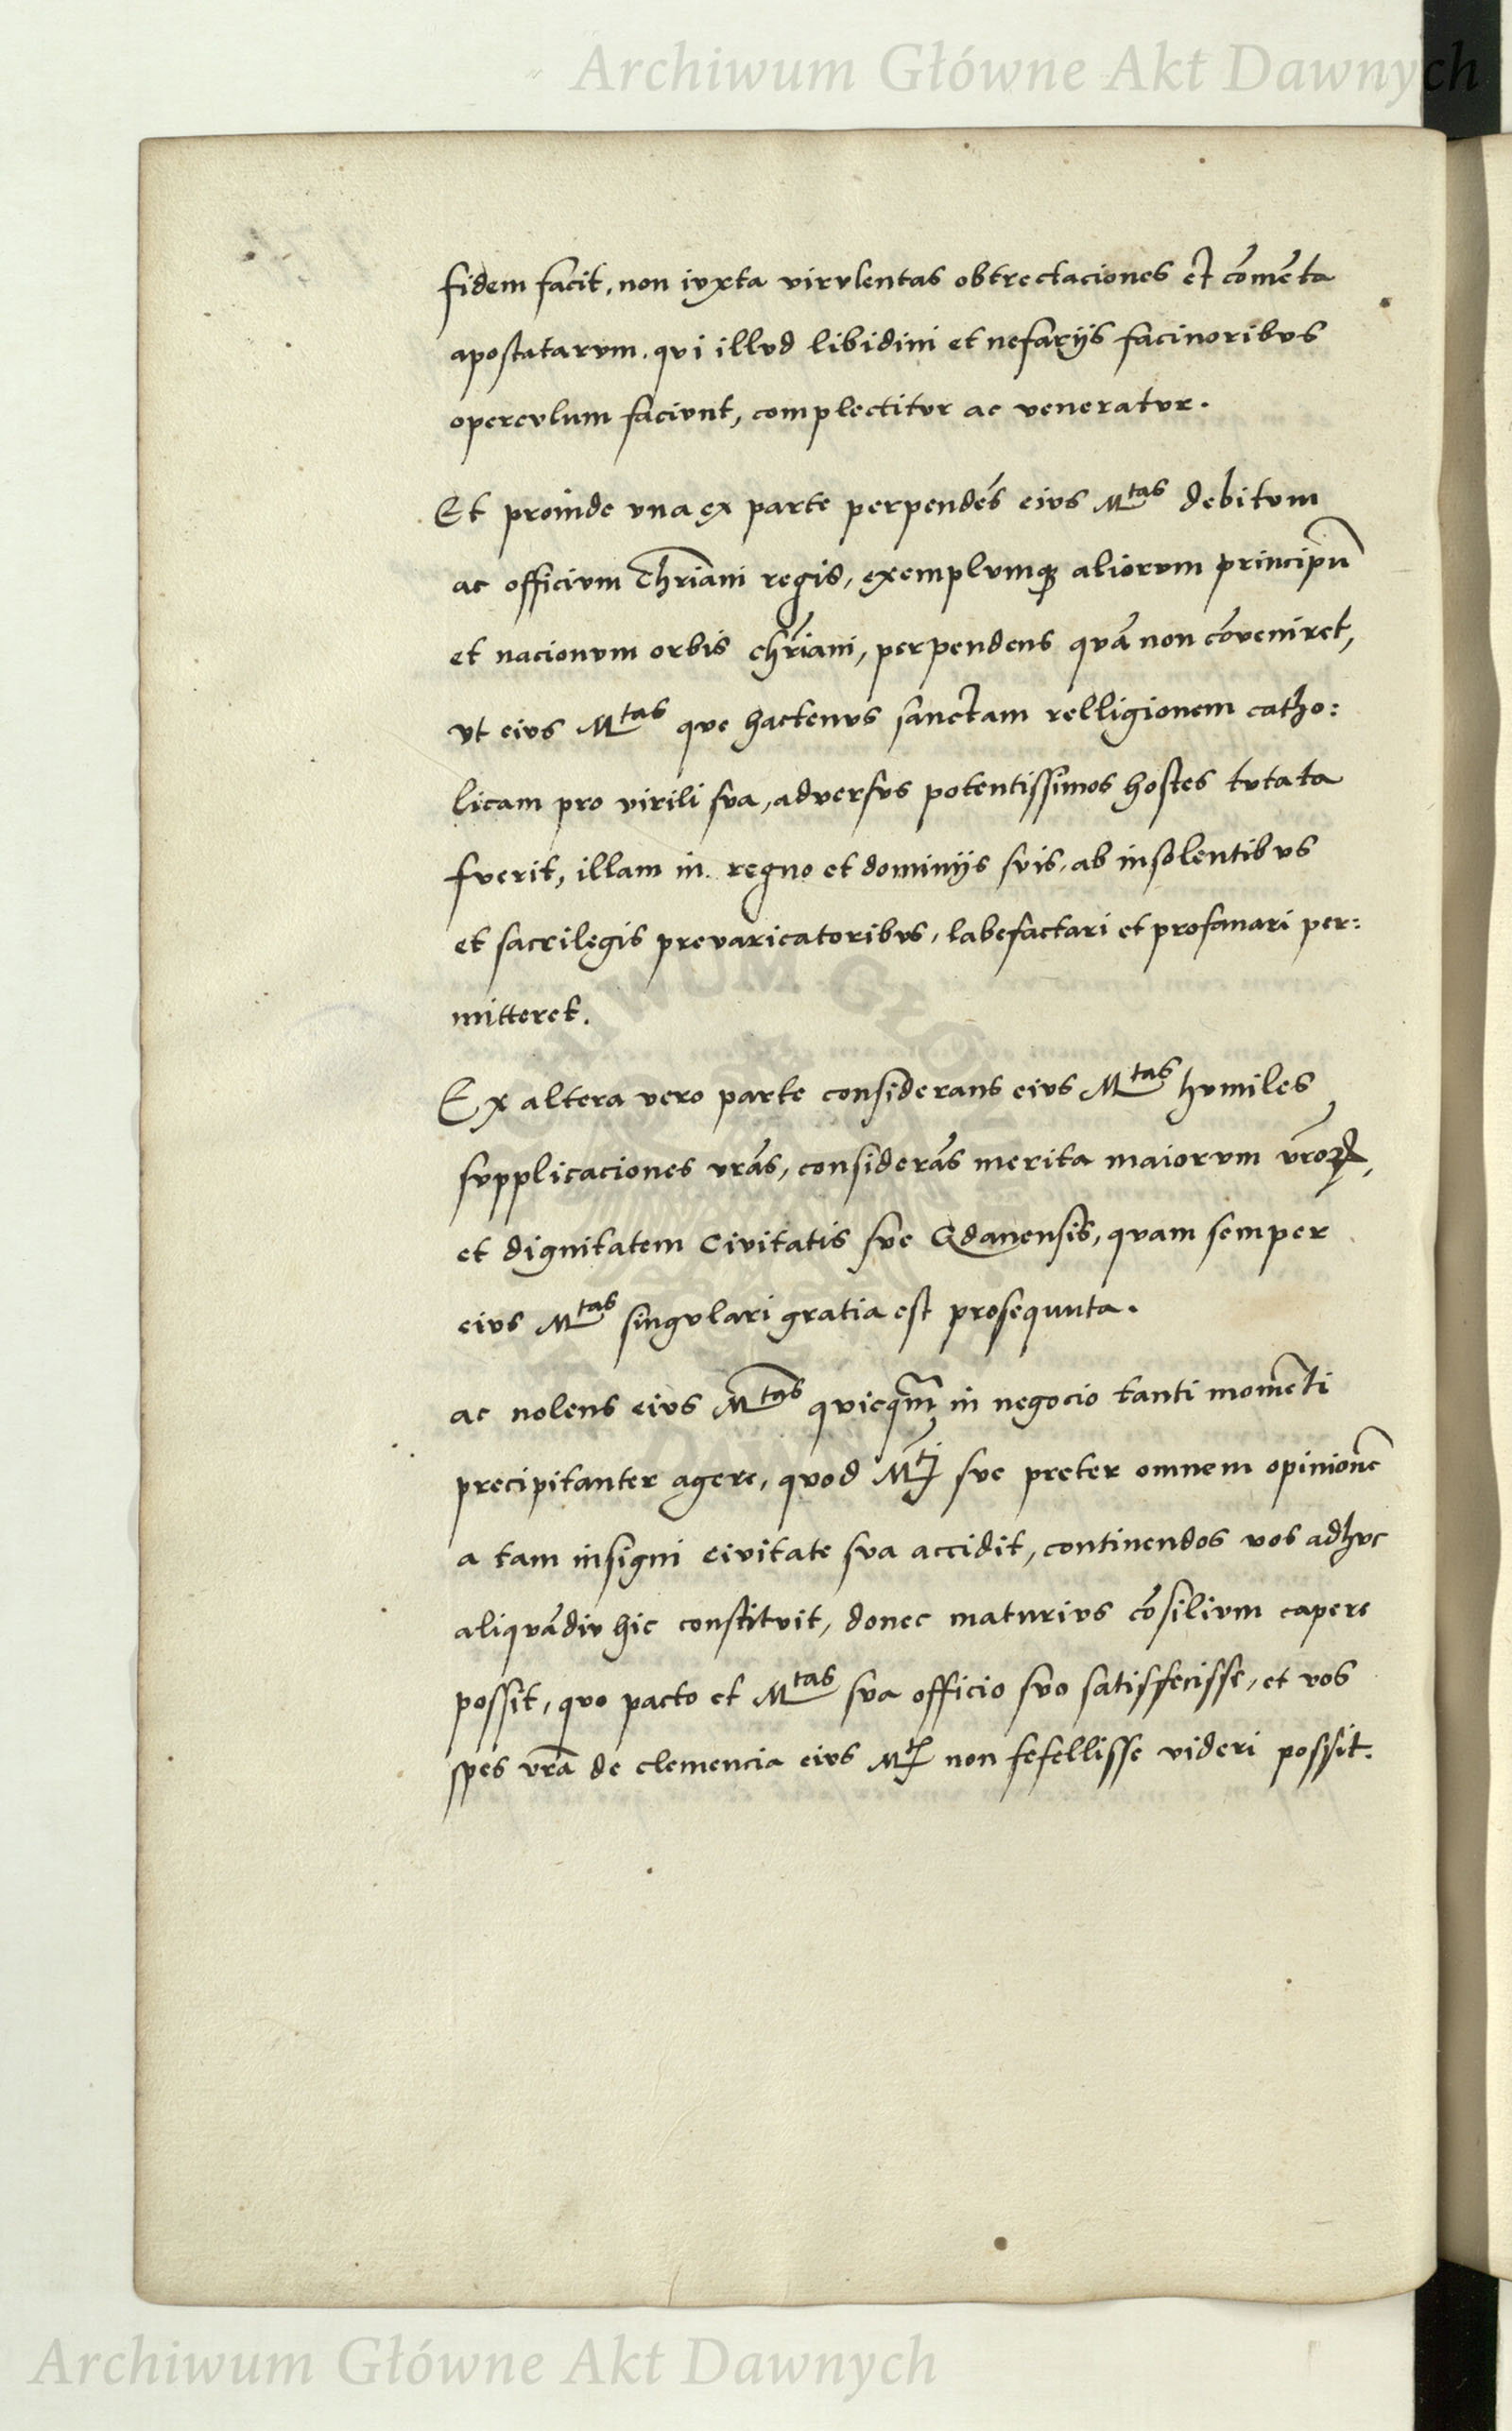 Archiwum Główne Akt Dawnych
fidem facit, non iuxta virvlentas obtrectaciones et cōmēta
apostatarvm, qvi illvd libidini et nefarijs facinoribvs
opercvlum facivnt, complectitvr ac veneratvr.
Et proinde vna ex parte perpendēs eivs M^tas debitvm
ac officivm Chr̄iani regis, exemplvmqꝫ aliorvm principū
et nacionvm orbis chr̄iani, perpendens qvā non cōveniret,
vt eivs M^tas qve hactenvs sanctam relligionem catho:
licam pro virili sva, adversvs potentissimos hostes tvtata
fverit, illam in regno et dominijs svis, ab insolentibvs
et sacrilegis prevaricatoribvs, labefactari et profanari per:
mitteret.
Ex altera vero parte considerans eivs M^tas hvmiles
svpplicaciones vr̄as, considerās merita maiorvm vr̄oꝝ,
et dignitatem Civitatis sve Gdanensis, qvam semper
eivs M^tas singvlari gratia est proseqvuta.
ac nolens eivs M^tas qvicq̄m in negocio tanti momēti
precipitanter agere, qvod M^tj sve preter omnem opinionē
a tam insigni civitate sva accidit, continendos vos adhvc
aliqvādiv hic constitvit, donec maturivs cōsilivm capere
possit, qvo pacto et M^tas sva officio svo satisfecisse, et vos
spes vr̄a de clemencia eivs M^tꝭ non fefellisse videri possit.
ARCHIWUM GŁÓWNE AKT DAWNYCH
Archiwum Główne Akt Dawnych